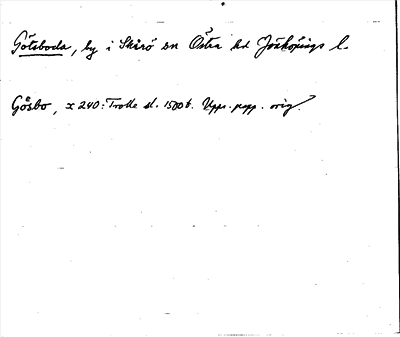 Götsboda, by i Skirö sn Östra hd Jönköpings l.
Gösbo, x 240: Trolle sl. 1500 t. Upps. papp. orig.